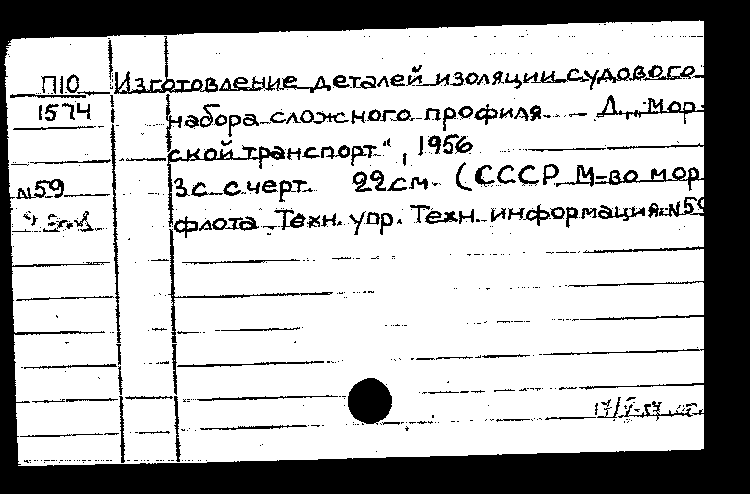 П10 Изготовление деталей изоляции судового
1574 набора сложного профиля. - Л., "Мор-
ской транспорт", 1956
№59 3с. с черт. 22см. (СССР. М-во мор
флота. Техн. упр. Техн. информация. №59
17/V-57